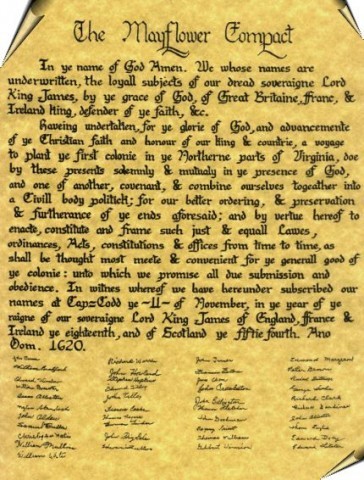 The Mayflower Compact
In ye name of God Amen. We whose names are
underwritten, the loyall subjects of our dread soveraigne Lord
King James, by ye grace of God, of Great Britaine, Franc, &
Ireland king, defender of ye faith, &c.
Haveing undertaken, for ye glorie of God, and advancemente
of ye Christian faith and honour of our king & countrie, a voyage
to plant ye first colonie in ye Northerne parts of Virginia, doe
by these presents solemnly & mutualy in ye presence of God,
and one of another, covenant, & combine ourselves togeather into
a Civill body politick; for our better ordering, & preservation
& furtherance of ye ends aforesaid; and by vertue hereof to
enacte, constitute and frame such just & equall Lawes,
ordinances, Acts, constitutions & offices from time to time, as
shall be thought most meete & convenient for ye generall good of
ye colonie: unto which we promise all due submission and
obedience. In witnes whereof we have hereunder subscribed our
names at Cap=Codd ye ~11~ of November, in ye year of ye
raigne of our soveraigne Lord King James of England, France &
Ireland ye eighteenth, and of Scotland ye fiftie fourth. Ano
Dom. 1620.
John Turner Edmund Margeson
William Bradford John Howland Peter Brown
Isaac Allerton John Tilley Richard Clark
John Alden John Allerton
Thomas Tinker Thomas Williams Edward Doty
William Mullins John Rigdale
William White